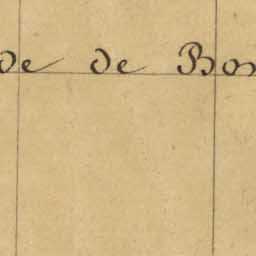 de de Bon